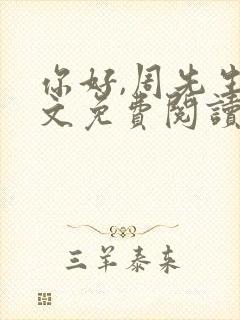 你好,周先生
文免费閱讀
三羊泰来